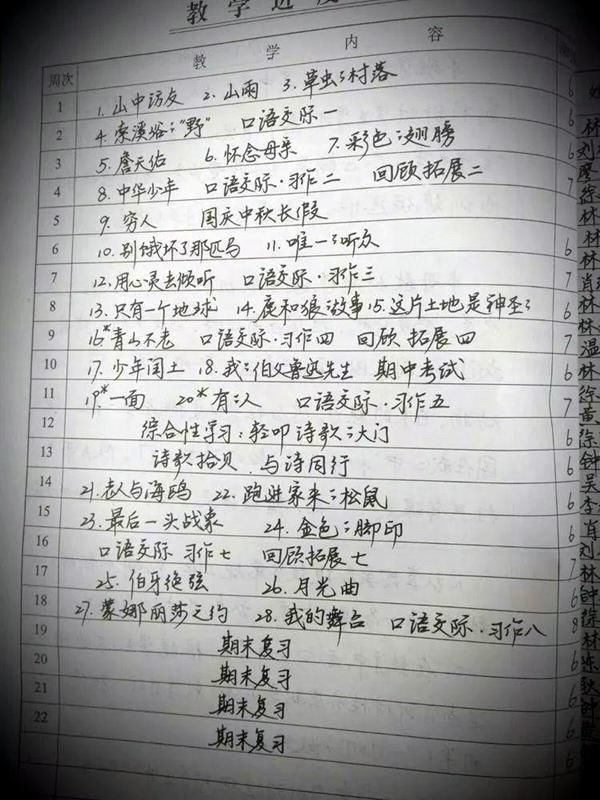 教学进度
周次 教学内容
1 1.山中访友 2.山雨 3.草虫的村落 6
2 4.索溪峪的"野" 口语交际一 6
3 5.詹天佑 6.怀念母亲 7.彩色的翅膀 6
4 8.中华少年 口语交际·习作二 回顾拓展二 7
5 9.穷人 国庆中秋长假
6 10.别饿坏了那匹马 11.唯一的听众 6
7 12.用心灵去倾听 口语交际·习作三 7
8 13.只有一个地球 14.鹿和狼的故事 15.这片土地是神圣的 6
9 16*青山不老 口语交际·习作四 回顾拓展四 7
10 17.少年闰土 18.我的伯父鲁迅先生 期中考试 6
11 19*.一面 20*有的人 口语交际·习作五 7
12 综合性学习:轻叩诗歌的大门 6
13 诗歌拾贝 与诗同行 6
14 21.老人与海鸥 22.跑进家来的松鼠 6
15 23.最后一头战象 24.金色的脚印 6
16 口语交际 习作七 回顾拓展七 7
17 25.伯牙绝弦 26.月光曲 6
18 27.蒙娜丽莎之约 28.我的舞台 口语交际·习作八 8
19 期末复习 6
20 期末复习 6
21 期末复习 6
22 期末复习 6